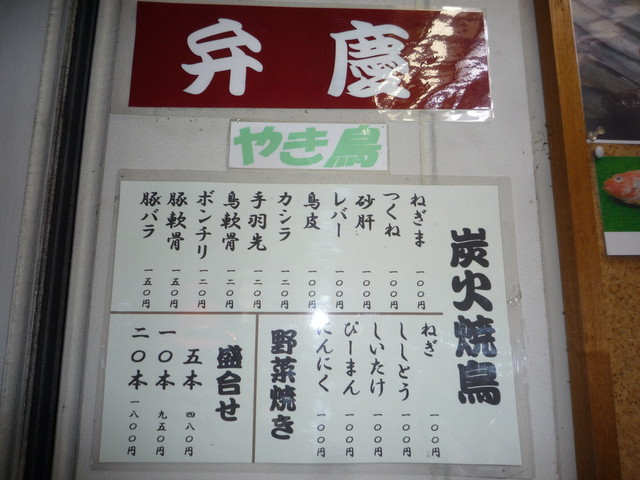 弁慶
やき鳥
炭火焼鳥
ねぎま 一〇〇円
つくね 一〇〇円
砂肝 一〇〇円
レバー 一〇〇円
鳥皮 一〇〇円
カシラ 一二〇円
手羽先 一二〇円
鳥軟骨 一二〇円
ボンチリ 一二〇円
豚軟骨 一五〇円
豚バラ 一五〇円
ねぎ 一〇〇円
ししとう 一〇〇円
しいたけ 一〇〇円
ぴーまん 一〇〇円
にんにく 一〇〇円
野菜焼き
盛合せ
五本 四八〇円
一〇本 九五〇円
二〇本 一八〇〇円